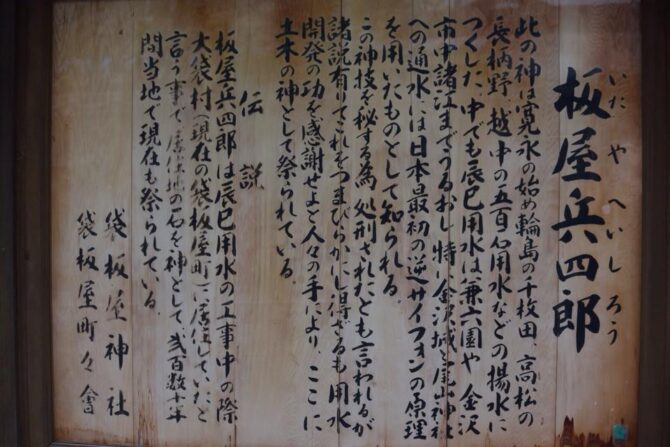 板屋兵四郎
いたやへいしろう
此の神は寛永の始め輪島の千枚田、高松の
長柄野、越中の五百石用水などの揚水に
つくした、中でも辰巳用水は兼六園や金沢
市中諸江までうるおし特に金沢城と尾山神社
への通水は日本最初の逆サイフォンの原理
を用いたものとして知られる。
この神技を秘する為処刑されたとも言われるが
諸説有りてこれをつまびらかにし得ざるも用水
開発の功を感謝せよと人々の手により、ここに
土木の神として祭られている。
伝説
板屋兵四郎は辰巳用水の工事中の際
大袋村(現在の袋板屋町)に居住していたと
言う事で居住地の一名を神として、弐百数十年
間当地で現在も祭られている。
袋板屋神社
袋板屋町々會